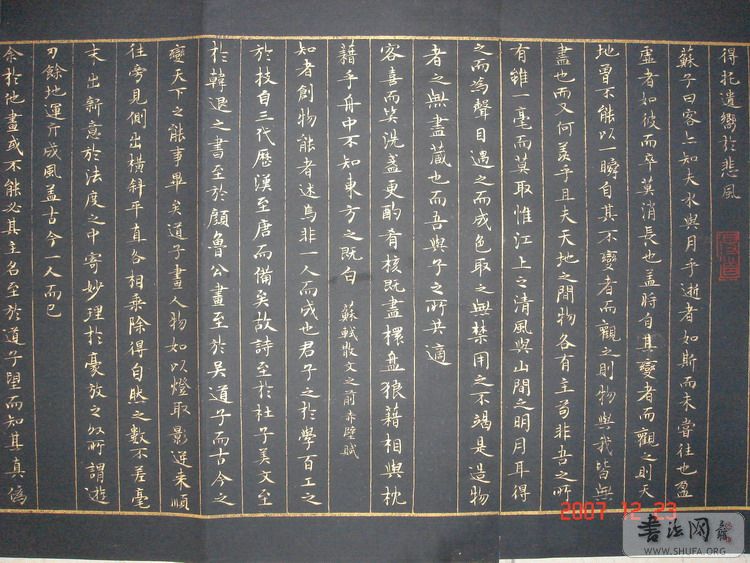 得托遺響於悲風
蘇子曰客亦知夫水與月乎逝者如斯而未嘗往也盈
虛者如彼而卒莫消長也盖將自其變者而觀之則天
地曾不能以一瞬自其不變者而觀之則物與我皆無
盡也而又何羨乎且夫天地之間物各有主苟非吾之所
有雖一毫而莫取惟江上之清風與山間之明月耳得
之而為聲目遇之而成色取之無禁用之不竭是造物
者之無盡藏也而吾與子之所共適
客喜而笑洗盞更酌肴核既盡杯盤狼藉相與枕
藉乎舟中不知東方之既白 蘇軾散文之前赤壁賦
知者創物能者述焉非一人而成也君子之於學百工之
於技自三代歷漢至唐而備矣故詩至於杜子美文至
於韓退之書至於顏魯公畫至於吳道子而古今之
變天下之能事畢矣道子畫人物如以燈取影逆來順
往旁見側出橫斜平直各相乘除得自然之數不差毫
末出新意於法度之中寄妙理於豪放之外所謂遊
刃餘地運斤成風盖古今一人而已
余於他畫或不能必其主名至於道子望而知其真偽
2007 12 23
书法网
WWW.SHUFA.ORG